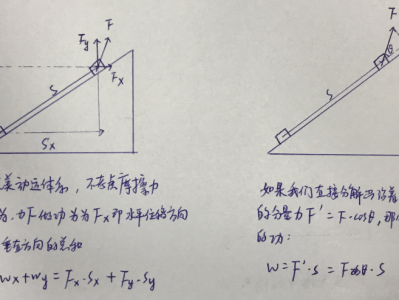 Fy F
Fx
S
Sx
F
θ
S
滑动运体系,不考虑摩擦力
为,力F做功为为Fx即水平位移方向
垂直方向的总和
Wx+Wy = Fx·Sx + Fy·Sy
如果我们直接分解出沿着
的分量力F'=F·cosθ,那
的功:
W=F'·S = Fcosθ·S